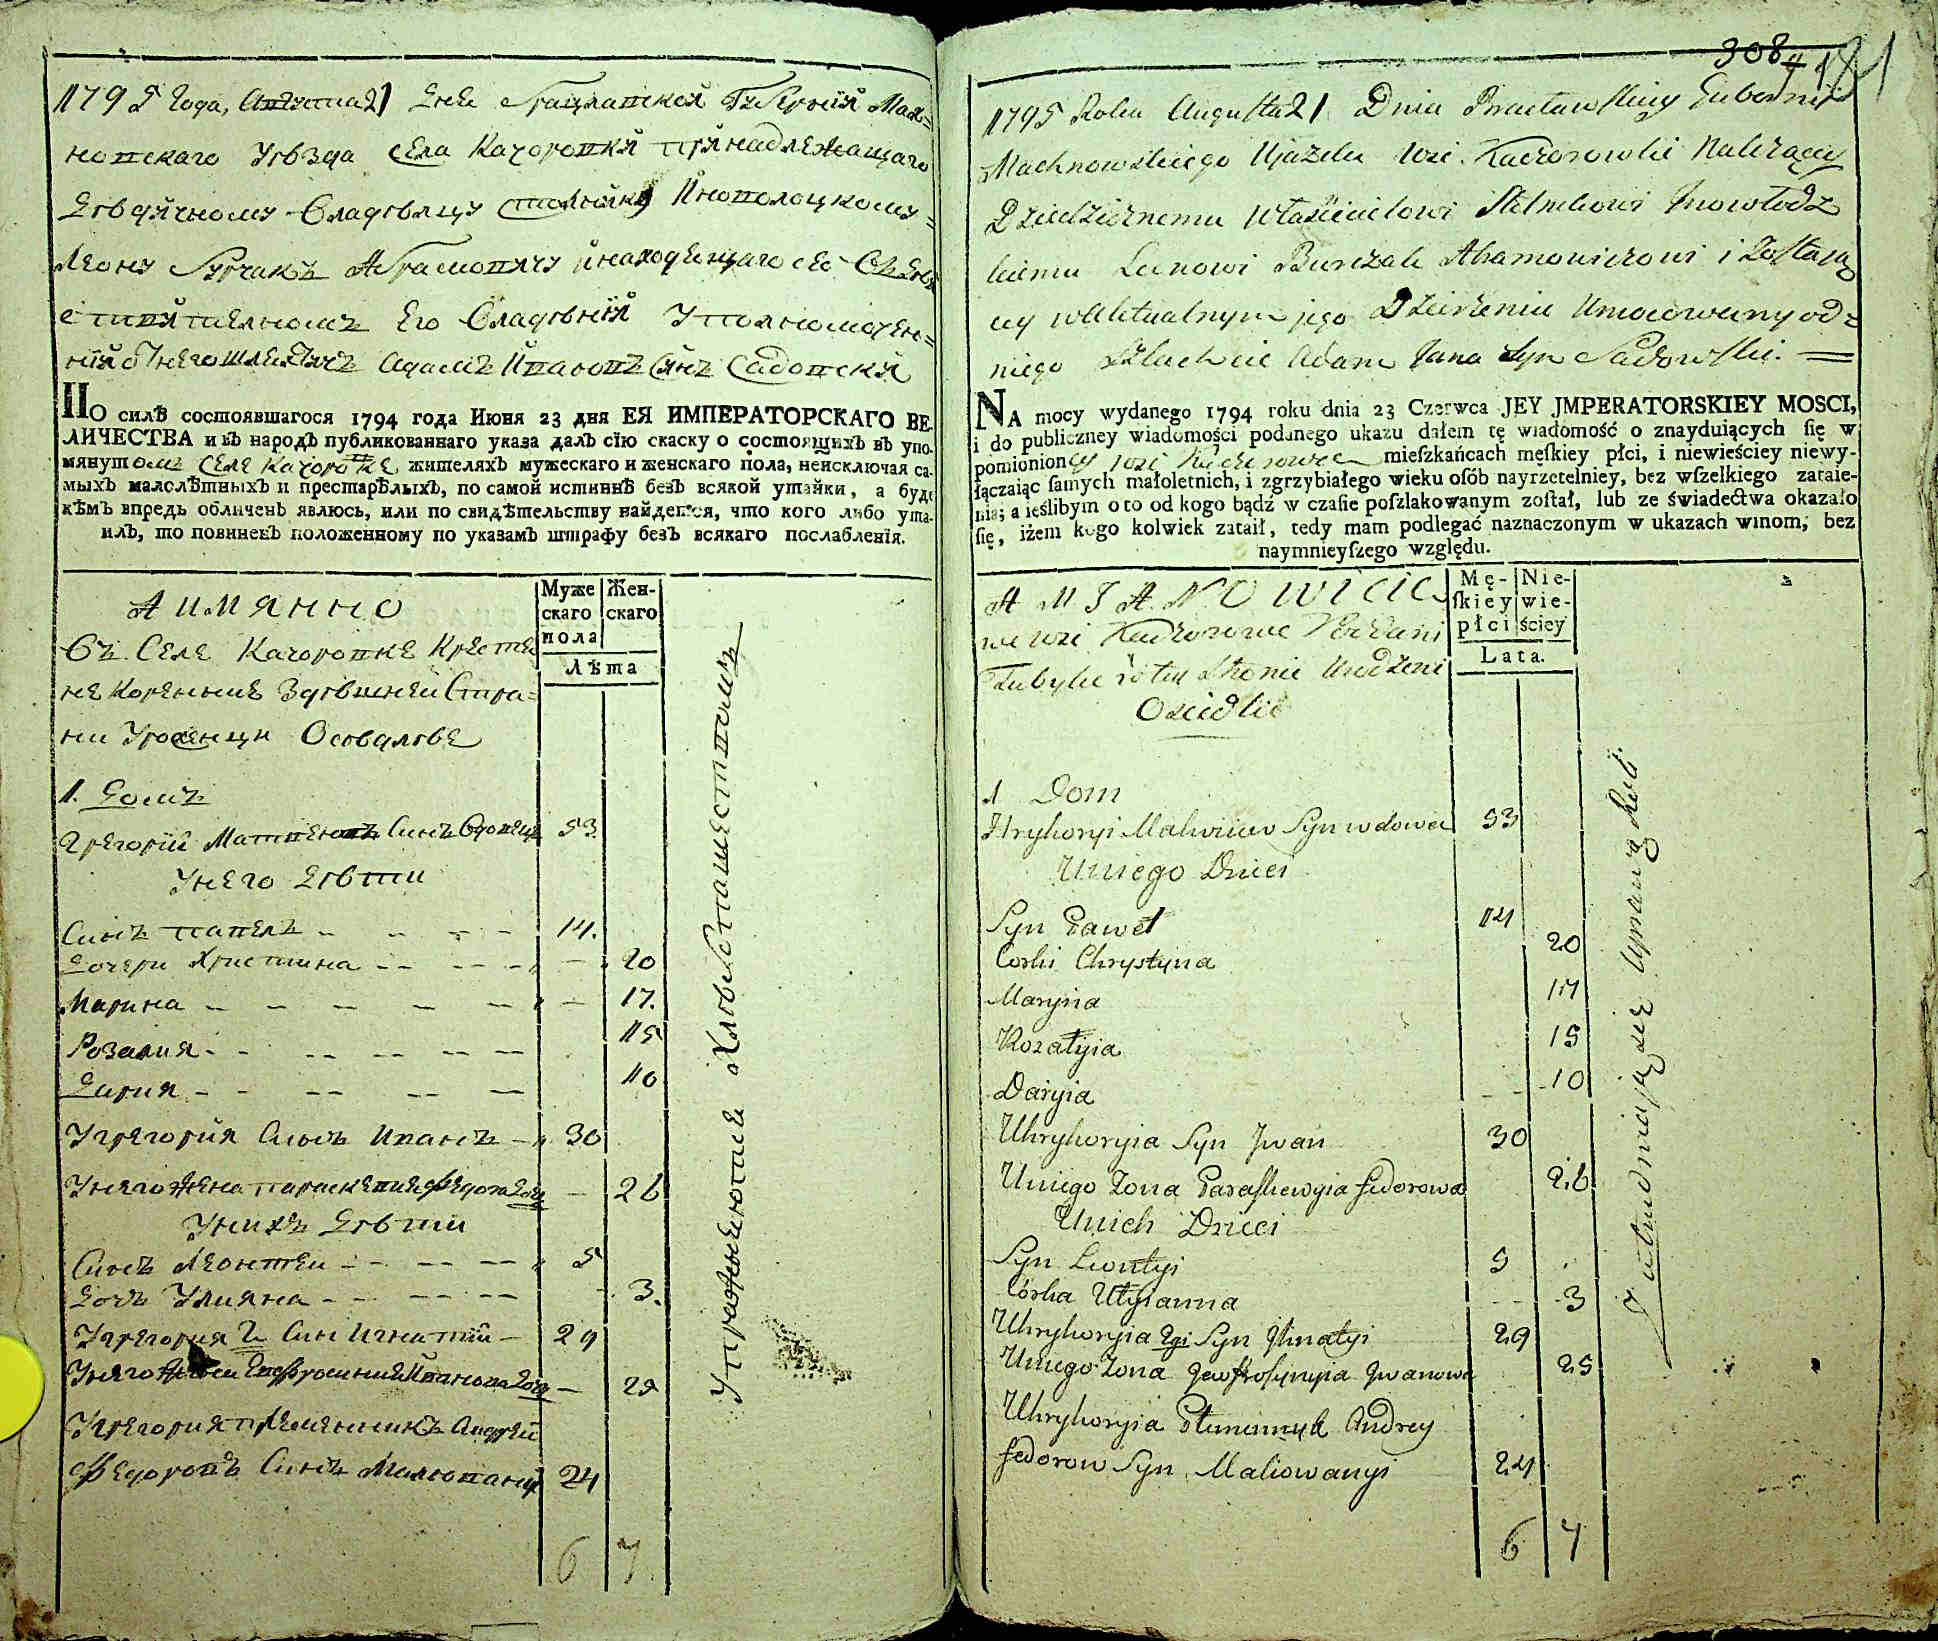 1795 Года, Августа 21 дня Брацлавской Губернїи Мах=
новскаго Уѣзда села Качоровки принадлежащаго
дѣдичному владѣлцу столнику Иновлоцкому
Леону Бурчакъ Абрамовичу и находещагосе въ дей
ствителномъ его владѣнїи уполномочен=
нїй от него шляхтичъ Адамъ Ивановъ синъ Садовскїй
ПО силѣ состоявшагося 1794 года Июня 23 дня ЕЯ ИМПЕРАТОРСКАГО ВЕ-
ЛИЧЕСТВА и въ народъ публикованнаго указа далъ сїю скаску о состоящихъ въ упо-
мянутомъ селе Качоровке жителяхъ мужескаго и женскаго пола, неисключая са-
мыхъ малолѣтныхъ и престарѣлыхъ, по самой истиннѣ безъ всякой утайки, а буде
кѣмъ впредь обличенъ явлюсь, или по свидѣтельству найдется, что кого либо ута-
илъ, то повиненъ положенному по указамъ штрафу безъ всякаго послабленїя.
А имянно
Въ селе Качоровке крестя
не кореньние здѣшней стра=
ни уроженци оседлие
Муже
скаго
пола
Жен-
скаго
Лѣта
1. Домъ
Грегорїй Матвеювъ синъ вдовецъ 53
У него дѣти
Синъ Павелъ 14.
Дочери Христина 20
Марина 17.
Розалия 15
Дария 10
У Грегория синъ Иванъ 30
У него жена Параскевия Федорова дочь 26
У нихъ дѣти
Синъ Леонтеи 5
Дочъ Улияна 3.
У Грегория 2й син Игнатїй 29
У него жена Евфросиния Иванова дочь 25
У Грегория племенникъ Андрей
Федоровъ синъ Малюваный 24
6 7
Упражнеются хлѣбопашествомъ
308 181
1795 Roku Augusta 21 Dnia Bracławskiey Gubernii
Machnowskiego Ujazdu wsi Kaczorowki Nalezącey
Dziedzicznemu właścicielowi Stolnikowi Inowłodz
kiemu Leonowi Burczak Abramowiczowi i zostaią
cey w aktualnym jego Dzierzeniu Umocowany od=
niego Szlachcic Adam Jana Syn Sadowski.
NA mocy wydanego 1794 roku dnia 23 Czerwca JEY JMPERATORSKIEY MOSCI,
i do publiczney wiadomości podanego ukazu dałem tę wiadomość o znayduiących ſię w
pomionioney wsi Kaczorowce mieſzkańcach męſkiey płci, i niewieściey niewy-
łączaiąc ſamych małoletnich, i zgrzybiałego wieku osób nayrzetelniey, bez wſzelkiego zataie-
nia; a ieślibym o to od kogo bądź w czaſie poſzlakowanym zoſtał, lub ze świadectwa okazało
ſię, iżem kogo kolwiek zataił, tedy mam podlegać naznaczonym w ukazach winom, bez
naymnieyſzego względu.
A MIANOWICIE
we wsi Kaczorowce Poddani
Tubylce w tey stronie Urodzeni
Osiedli
Mę-
ſkiey
płci
Nie-
wie-
ściey
Lata.
1 Dom
Hryhoryi Matwiiow Syn wdowec 53
U niego Dzieci
Syn Paweł 14
Corki Chrystyna 20
Maryna 17
Rozalyia 15
Daryia 10
U Hryhoryia Syn Jwan 30
U niego Zona Paraskewyia Fedorowa 26
U nich Dzieci
Syn Leontyi 5
Córka Ulyianna 3
U Hryhoryia 2gi Syn Yhnatyi 29
U niego Zona Jewfrosynyia Jwanowa 25
U Hryhoryia Plemennyk Andrey
Fedorow Syn Maliowanyi 24
6 7
Zatrudniają się Uprawą Roli